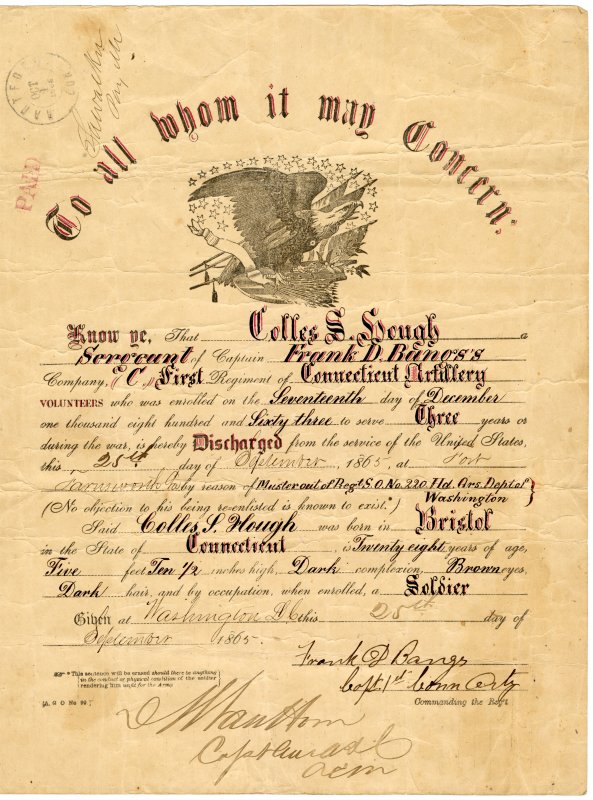 HARTFORD CON
OCT
PAID
To all whom it may Concern:
Know ye, That Colles S. Hough a
Sergeant of Captain Frank D. Bangs's
Company, "C," First Regiment of Connecticut Artillery
VOLUNTEERS who was enrolled on the Seventeenth day of December
one thousand eight hundred and Sixty three to serve Three years or
during the war, is hereby Discharged from the service of the United States,
this 25th day of September, 1865, at Fort
Farnsworth by reason of Muster out of Regt S.O. No. 220. Hd. Qrs. Dept of
Washington
(No objection to his being re-enlisted is known to exist.*)
Said Collis S. Hough was born in Bristol
in the State of Connecticut, is Twenty eight years of age,
Five feet Ten 1/2 inches high, Dark complexion, Brown eyes,
Dark hair, and by occupation, when enrolled, a Soldier
Given at Washington D C this 25th day of
September 1865.
Frank D Bangs
Capt 1st Conn Arty
Commanding the Reg't
* This sentence will be erased should there be anything
in the conduct or physical condition of the soldier
rendering him unfit for the Army.
[A. G. O. No. 99.]